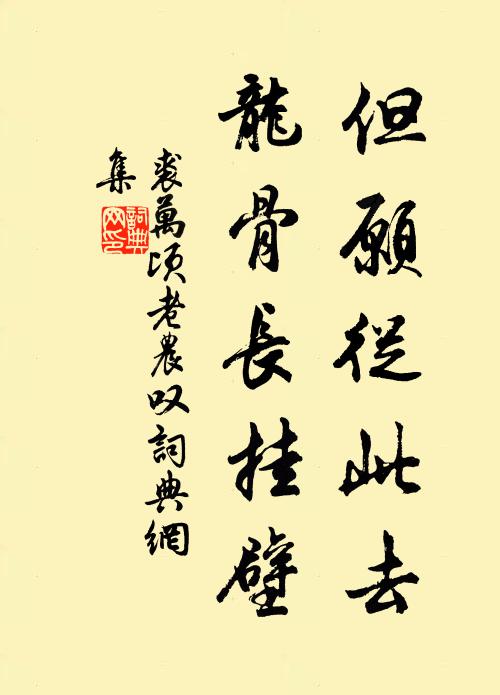 但願從此去
龍骨長挂壁
裘萬頃老農叹詞典網
集
詞典
网印